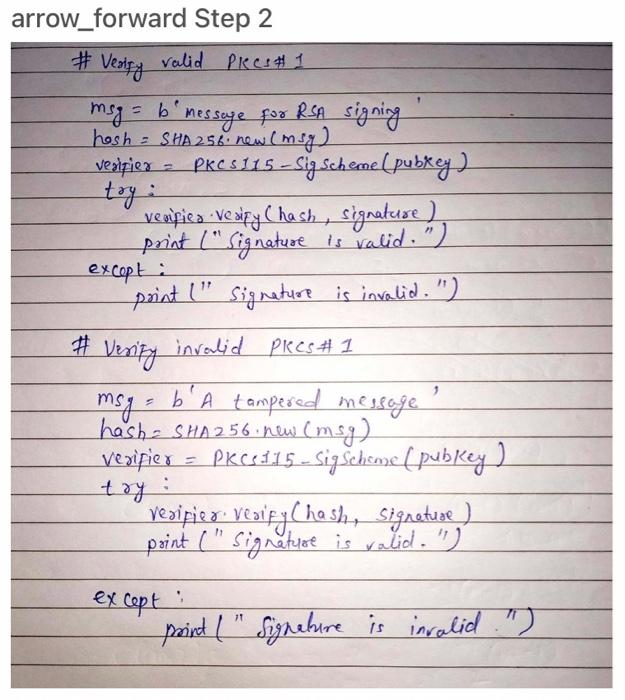 arrow_forward Step 2
# Verify valid PKCS#1
msg = b'message for RSA signing'
hash = SHA256.new(msg)
verifier = PKCS115-SigScheme(pubkey)
try :
verifier.verify(hash, signature)
print ("Signature is valid.")
except :
print (" Signature is invalid.")
# Verify invalid PKCS#1
msg = b'A tampered message'
hash = SHA256.new(msg)
verifier = PKCS115-SigScheme(pubkey)
try :
verifier.verify(hash, signature)
print ("Signature is valid.")
except :
print (" Signature is invalid.")